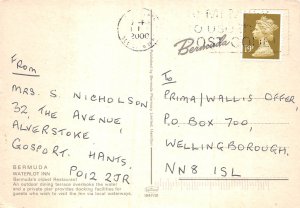 2000
REMEMBER
TO USE THE
POSTCODE
19P
Bermuda
From
MRS. S. NICHOLSON
32, THE AVENUE
ALVERSTOKE
GOSPORT. HANTS.
PO12 2JR
BERMUDA
WATERLOT INN
Bermuda's oldest Restaurant
An outdoor dining terrace overlooks the water
and a private pier provides docking facilities for
guests who wish to visit the Inn via local waterways.
To
PRIMA/WALLIS OFFER,
PO BOX 700,
WELLINGBOROUGH.
NN8 1SL